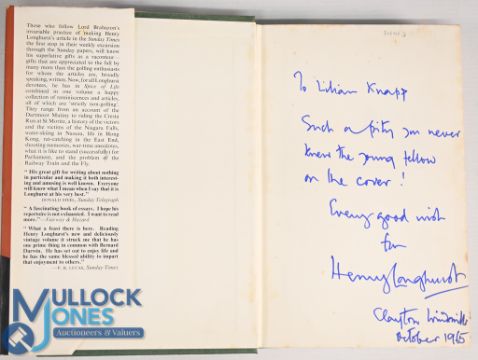 Those who follow Lord Brabazon's
invariable practice of making Henry
Longhurst's article in the Sunday Times
the first stop in their weekly excursion
through the Sunday papers, will know
his superlative gifts as a raconteur –
gifts that are appreciated to the full by
many more than the golfing enthusiasts
for whom the articles are, broadly
speaking, written. Now, for all Longhurst
devotees, he has in Spice of Life
combined in one volume a happy
collection of reminiscences and articles,
all of which are 'strictly non-golfing'.
They range from an account of the
Dartmoor Mutiny to riding the Cresta
Run at St Moritz, a history of the victors
and the victims of the Niagara Falls,
water-skiing in Nassau, life in Hong
Kong, rat-catching in the East End,
shooting memories, war-time anecdotes,
what it is like to stand (successfully) for
Parliament, and the problem of the
Railway Train and the Fly.
" His great gift for writing about nothing
in particular and making it both interest-
ing and amusing is well known. Everyone
will know what I mean when I say that it is
Longhurst at his very best."
Sunday Telegraph
" A fascinating book of essays. I hope his
repertoire is not exhausted. I want to read
more."—Fairway & Hazard
" What a feast there is here. Reading
Henry Longhurst's new and deliciously
vintage volume it struck me that he has
one prime thing in common with Bernard
Darwin. He has set out to enjoy life and
he has the same blessed ability to impart
that enjoyment to others."
—P. B. LUCAS, Sunday Times
To Lilian Knapp
Such a pity you never
knew the young fellow
on the cover!
Every good wish
from
Henry Longhurst
Clayton Windmills
October 1965
MULLOCK
JONES
Auctioneers & Valuers